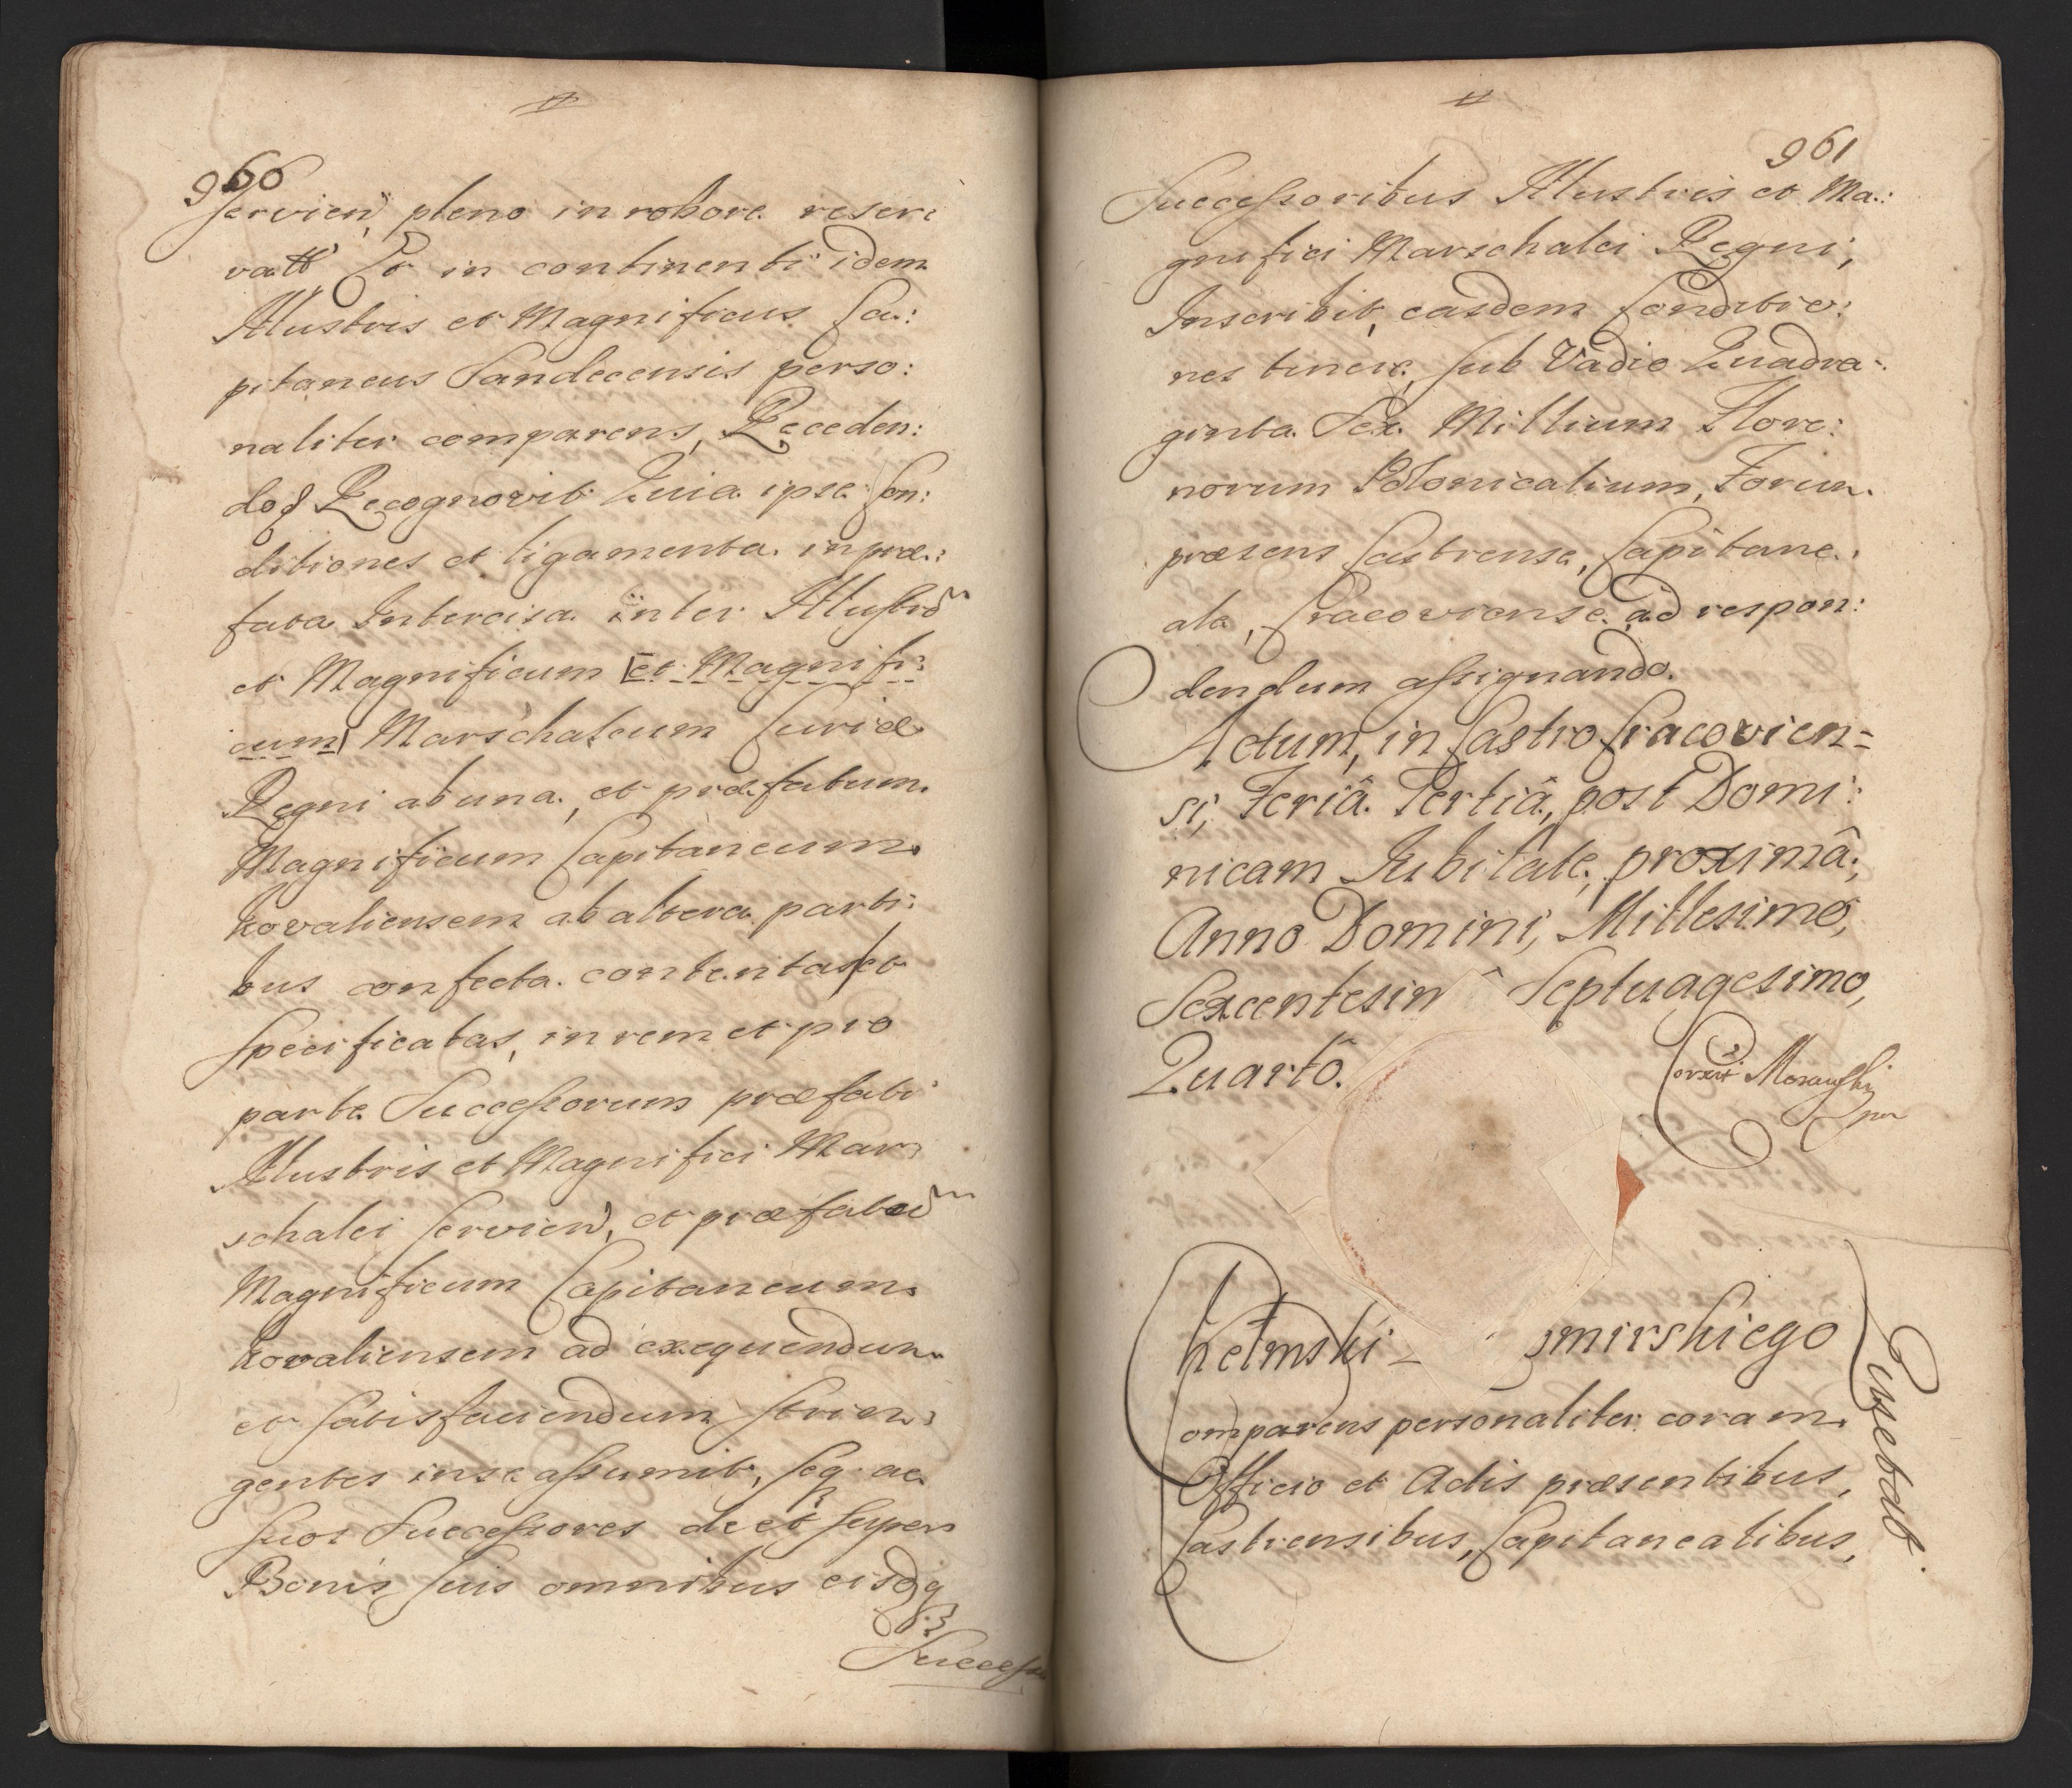 960
servien, pleno in robore reser:
vatt Et in continenti idem
Illustris et Magnificus Ca:
pitaneus Sandecensis perso:
naliter comparens, Receden:
doq Recognovit Quia ipse Con:
ditiones et ligamenta in præ:
fata Intercisa inter Illustrem
et Magnificum et Magnifi:
cum Marschalcum Curiæ
Regni ab una, et præfatum
Magnificum Capitaneum
Kovaliensem ab altera parti:
bus confecta contentas et
specificatas, in rem et pro
parte Successorum præfati
Illustris et Magnifici Mar:
schalci servien, et præfatum
Magnificum Capitaneum
Kovaliensem ad exequendum
et satisfaciendum strin:
gentes in se assumit, seq ac
suos Successores de et super
Bonis suis omnibus eisdq
Success
961
Successoribus Illustris et Ma:
gnifici Marschalci Regni,
Inscribit, easdem Conditio:
nes tenere, sub Vadio Quadra:
ginta Sex Millium Flore:
norum Polonicalium, Forum
præsens Castrense, Capitane:
ale, Cracoviense ad respon:
dendum assignando.
Actum, in Castro Cracovien=
si, Feriâ Tertiâ, post Domi:
nicam Jubilate, proximâ,
Anno Domini, Millesimo,
Sexcentesim Septuagesimo,
Quartô.
Correxit
Chełmski - mirskiego
Comparens personaliter coram
Officio et Actis præsentibus,
Castrensibus, Capitanealibus,